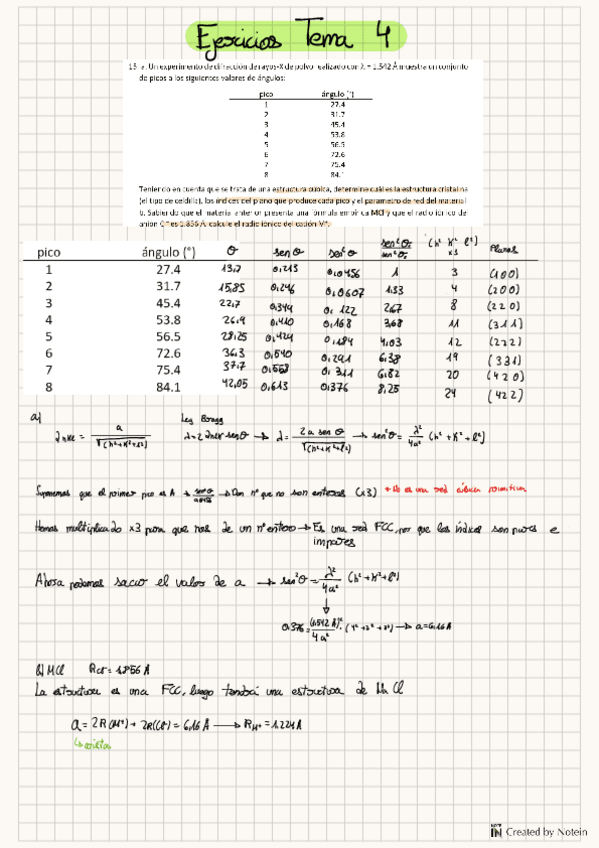 Ejercicios Tema 4
13. a. Un experimento de difracción de rayos-X de polvo realizado con λ = 1.542 Å muestra un conjunto
de picos a los siguientes valores de ángulos:
pico ángulo (°)
1 27.4
2 31.7
3 45.4
4 53.8
5 56.5
6 72.6
7 75.4
8 84.1
Teniendo en cuenta que se trata de una estructura cúbica, determine cuál es la estructura cristalina
(el tipo de celdilla), los índices del plano que produce cada pico y el parámetro de red del material
b. Sabiendo que el material anterior presenta una fórmula empírica MCl y que el radio iónico de
anión Cl⁻ es 1.856 Å, calcule el radio iónico del catión M⁺.
pico ángulo (°) θ senθ sen²θ sen²θ/sen²θ (h² k² l²) x3 Planos
1 27.4 13,7 0,213 0,0456 1 3 (100)
2 31.7 15,85 0,246 0,0607 1.33 4 (200)
3 45.4 22,7 0,344 0,122 2,67 8 (220)
4 53.8 26,9 0,410 0,168 3,68 11 (311)
5 56.5 28,25 0,424 0,184 4,03 12 (222)
6 72.6 36,3 0,540 0,291 6,38 19 (331)
7 75.4 37,7 0,558 0,311 6,82 20 (420)
8 84.1 42,05 0,613 0,376 8,25 24 (422)
a)
Ley Bragg
dhkl = a/√(h²+k²+l²) λ=2 dhkl senθ → λ = 2a senθ/√(h²+k²+l²) → sen²θ = λ²/4a² (h²+k²+l²)
Suponemos que el primer pico es A → → Dan nº que no son enteros (x3) → No es una red cúbica primitiva
Hemos multiplicado x3 para que nos de un nº entero → Es una red FCC, por que los índices son pares e
impares
Ahora podemos sacar el valor de a → sen²θ = λ²/4a² (h²+k²+l²)
0,376 = (1,542 Å)²/4a² · (4²+2²+2²) → a=6,16 Å
b) MCl RCl⁻ = 1.856 Å
La estructura es una FCC, luego tendrá una estructura de NaCl
a = 2R(M⁺) + 2R(Cl⁻) = 6,16 Å → RM⁺ = 1.224 Å
↳ arista
Created by Notein